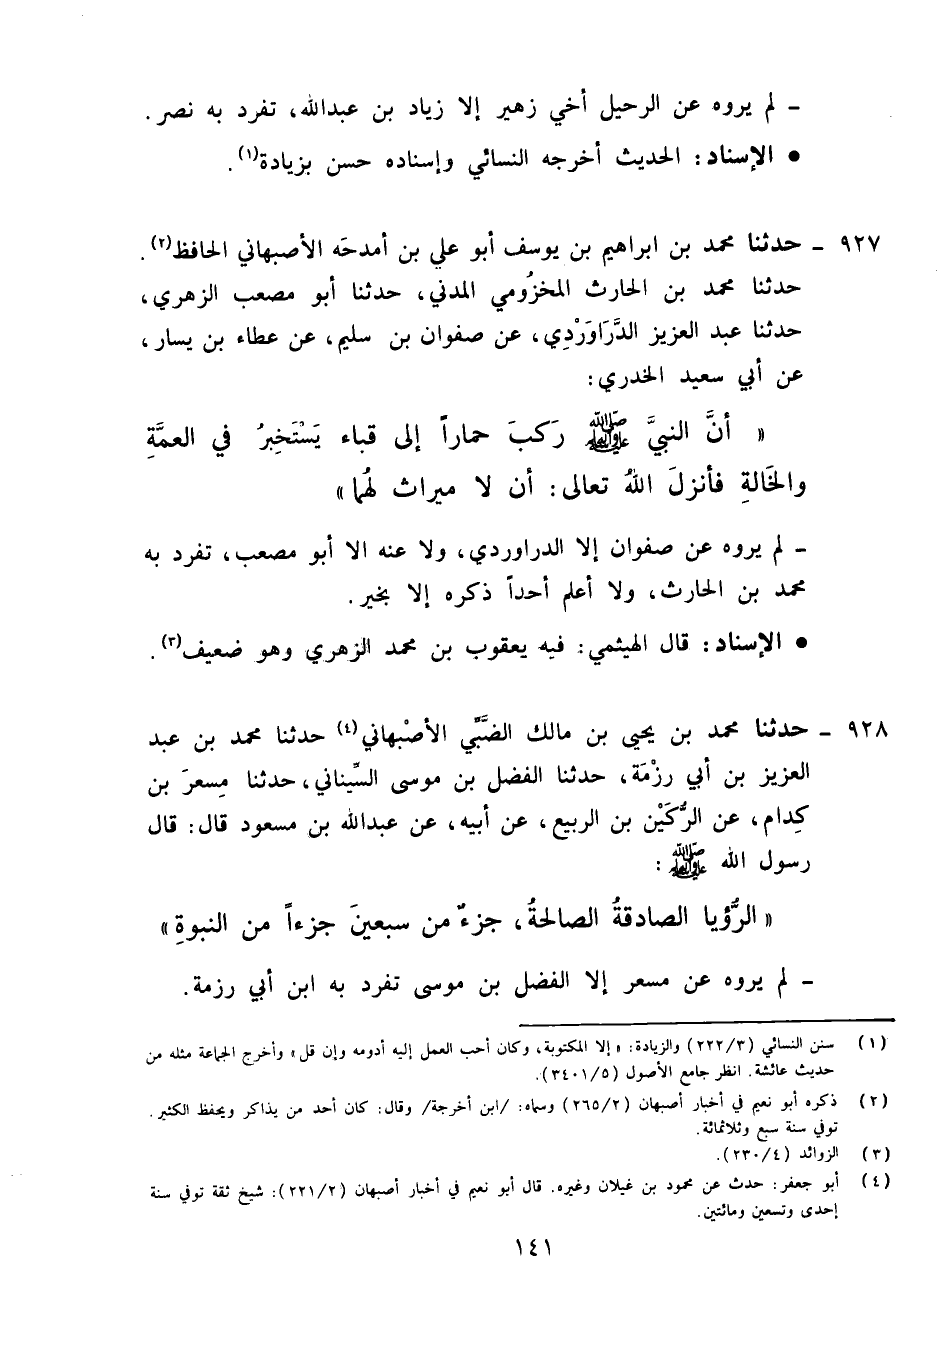 ـ لم يروه عن الرحيل أخي زهير إلا زياد بن عبدالله، تفرد به نصر.
● الإسناد: الحديث أخرجه النسائي وإسناده حسن بزيادة(١).
٩٢٧ ـ حدثنا محمد بن ابراهيم بن يوسف أبو علي بن أمدحَه الأصبهاني الحافظ(٢).
حدثنا محمد بن الحارث المخزُومي المدني، حدثنا أبو مصعب الزهري،
حدثنا عبد العزيز الدَّرَاوَرْدِي، عن صفوان بن سليم، عن عطاء بن يسار،
عن أبي سعيد الخدري:
« أنَّ النبيَّ ﷺ رَكبَ حماراً إلى قباء يَسْتَخِبرُ في العمَّةِ
والخَالةِ فأنزلَ اللهُ تعالى: أن لا ميراث لهُما»
ـ لم يروه عن صفوان إلا الدراوردي، ولا عنه الا أبو مصعب، تفرد به
محمد بن الحارث، ولا أعلم أحداً ذكره إلا بخير.
● الإسناد: قال الهيثمي: فيه يعقوب بن محمد الزهري وهو ضعيف(٣).
٩٢٨ ـ حدثنا محمد بن يحيى بن مالك الضَّبِّي الأصْبهاني(٤) حدثنا محمد بن عبد
العزيز بن أبي رزْمَة، حدثنا الفضل بن موسى السِّيناني، حدثنا مِسعرَ بن
كِدام، عن الرُّكَيْن بن الربيع، عن أبيه، عن عبدالله بن مسعود قال: قال
رسول الله ﷺ :
« الرُّؤيا الصادقةُ الصالحةُ، جزءٌ من سبعينَ جزءاً من النبوةِ»
ـ لم يروه عن مسعر إلا الفضل بن موسى تفرد به ابن أبي رزمة.
(١) سنن النسائي (٢٢٢/٣) والزيادة: «إلا المكتوبة، وكان أحب العمل إليه أدومه وإن قل» وأخرج الجماعة مثله من
حديث عائشة. انظر جامع الأصول (٣٤٠١/٥).
(٢) ذكره أبو نعيم في أخبار أصبهان (٢٦٥/٢) وسماه: /ابن أخرجة/ وقال: كان أحد من يذاكر ويحفظ الكثير.
توفي سنة سبع وثلاثمائة.
(٣) الزوائد (٢٣٠/٤).
(٤) أبو جعفر: حدث عن محمود بن غيلان وغيره. قال أبو نعيم في أخبار أصبهان (٢٢١/٢): شيخ ثقة توفي سنة
إحدى وتسعين ومائتين.
١٤١